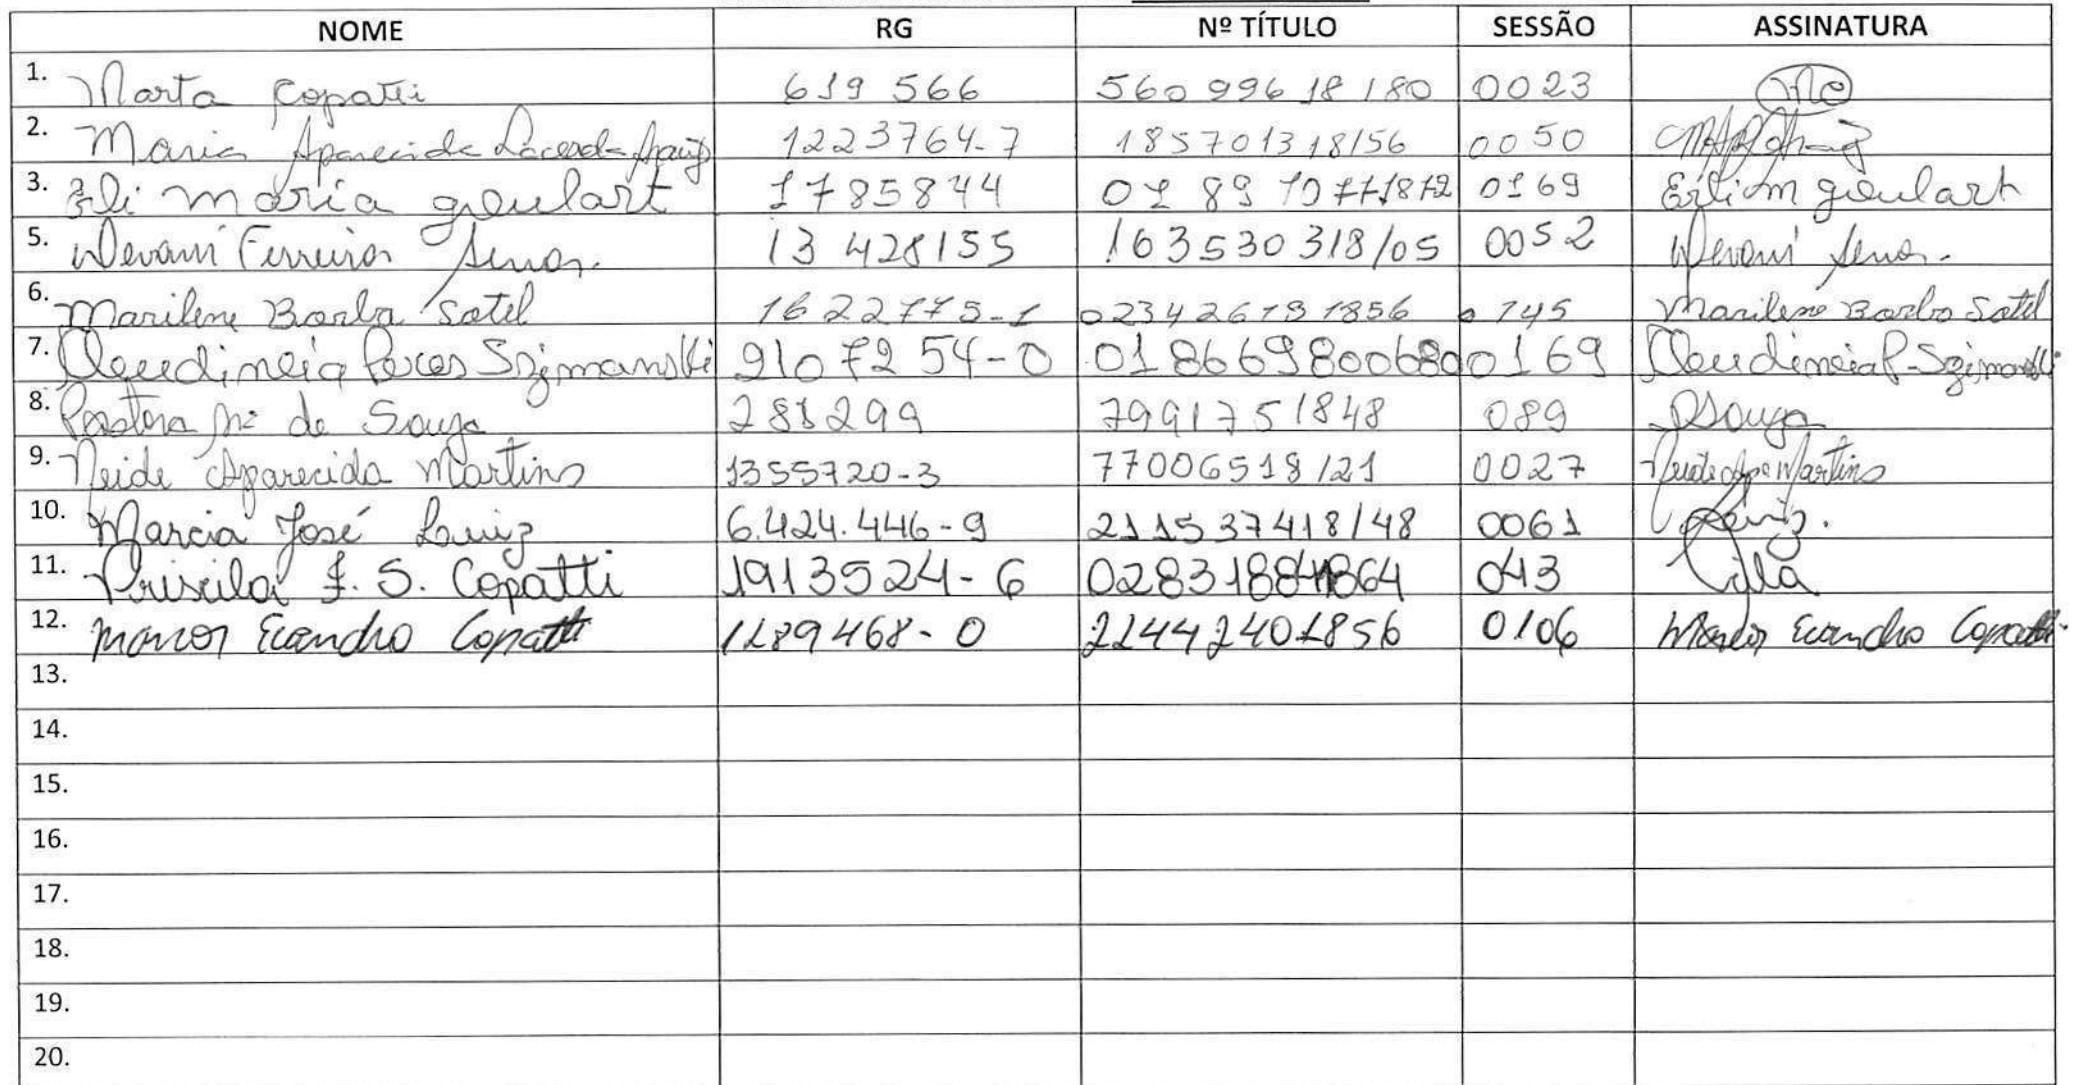 NOME RG Nº TÍTULO SESSÃO ASSINATURA
1. Marta Copatti 619 566 560 996 18 180 0023
2. Maria Aparecida Lacerda Araujo 1223764-7 185701318/56 0050
3. Eli maria goulart 1785844 0169 goulart
5. Devani Ferreira 13 428155 163530318/05 0052 Devani
6. Marilene Barba Satel 1622775-1 023426191856 0145 Marilene Barba Satel
7. Claudineia Peres Szimanski 9107254-0 018669800680 0169 Claudineia P. Szimanski
8. Pastora Mª de Souza 281299 7991751848 089 Souza
9. Neide Aparecida Martins 1355720-3 77006518/21 0027 Neide Apª Martins
10. Marcia José Luiz 6.424.446-9 211537418/48 0061 Luiz.
11. Priscila F. S. Copatti 1913524-6 043
12. Evandro Copatti 1289468-0 0106 Evandro Copatti
13.
14.
15.
16.
17.
18.
19.
20.